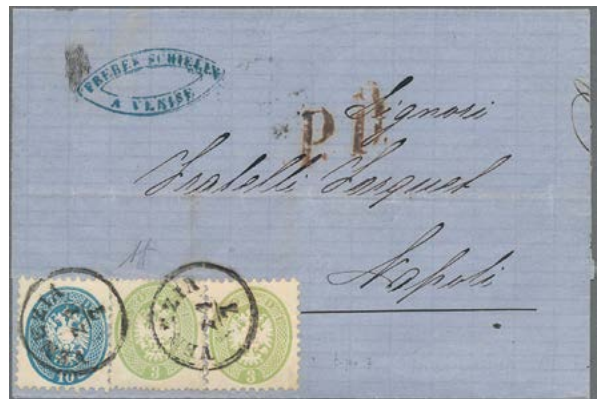 FRERES SCHIELIN
A VENISE
P.D.
Signori
Fratelli
Napoli
VENEZIA
VENEZIA
10
3
3